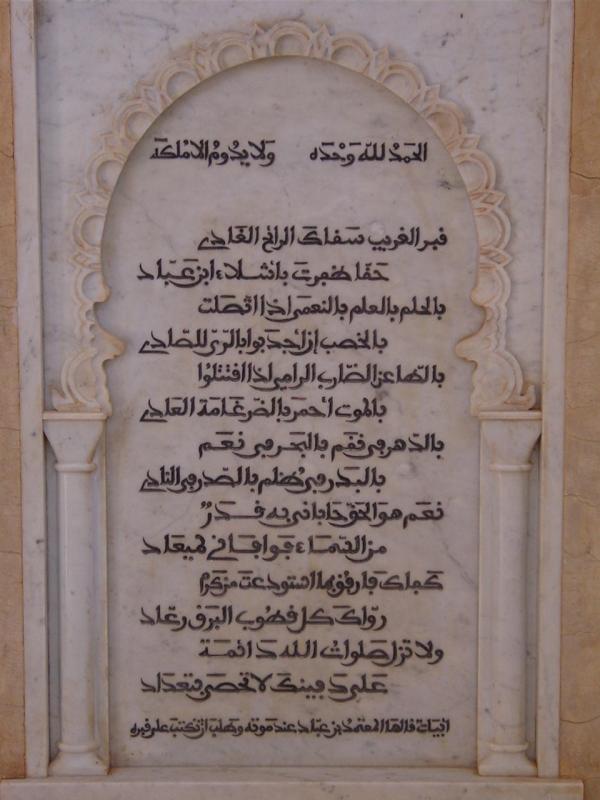 الحَمْدُ لله وَحْدَه ولا يدُومُ الا مُلكه
قبر الغريب سَقاكَ الرائح الغَادي
حَقّا ظَفِرتَ باشلاء ابن عَبّاد
بالحلم بالعلم بالنعمى اذا اتّصَلت
بالخصب إن أجدَبوا بالرّي للصّادي
بالطاعن الضّارب الرامي اذا اقتتلُوا
بالموت أحمر بالضّرغَامَة العَادي
بالدّهر في نقم بالبَحر في نِعَم
بالبَدر في ظُلم بالصّدر في النادي
نعَم هوَ الحَق حَاباني به قَدَرٌ
من السّمَاء فوافَاني لميعَاد
كفاك فارفق بما استودعتَ من كرم
روّاكَ كل قطُوب البَرق رعّاد
ولا تزل صَلواتُ الله دَائمة
على دَفينكَ لا تحصَى بتعدَاد
ابيات قالها المعتمدُ بن عبّاد عند موته وطلب ان تكتب على قبره